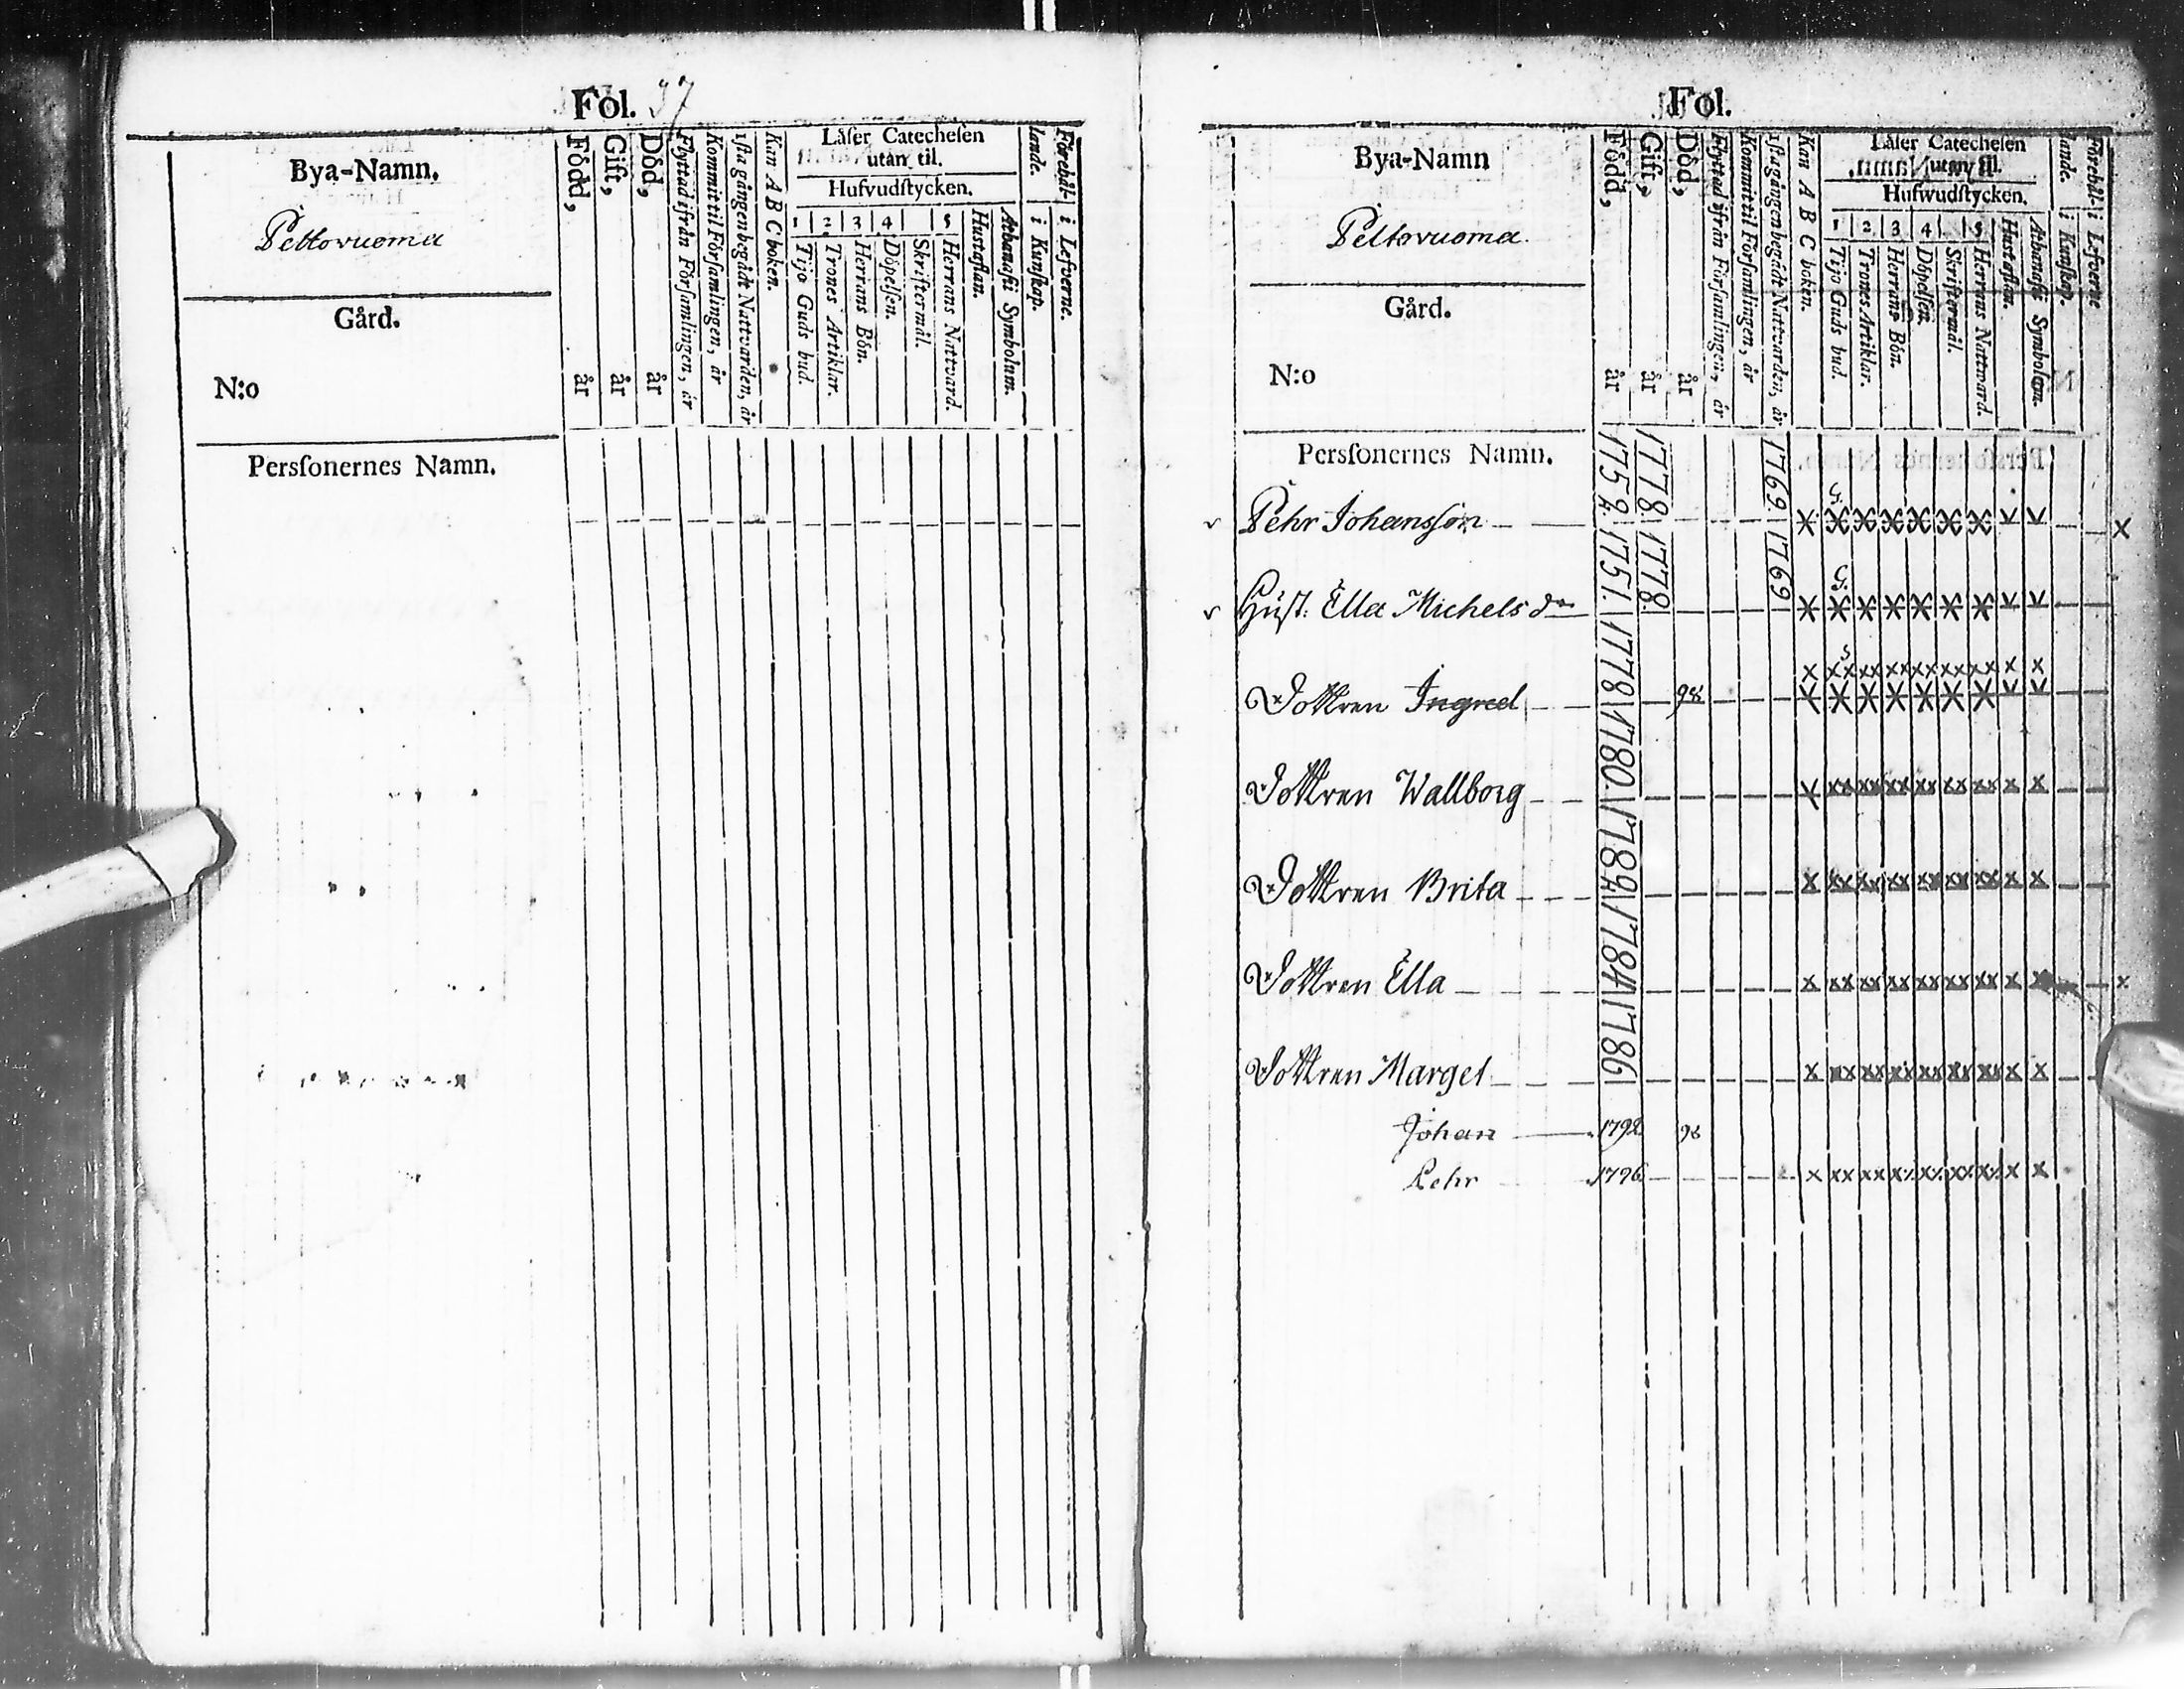 Fol. 37
Bya-Namn.
Peltovuoma
Gård.
N:o
Persſonernes Namn.
Född, år
Gift, år
Död, år
Flyttad ifrån Förſamlingen, år
Kommit til Förſamlingen, år
1ſta gången begådt Nattvarden, år
Kan A B C boken.
Läſer Catecheſen
utan til.
Hufvudſtycken.
1 2 3 4 5
Tijo Guds bud.
Trones Artiklar.
Herrans Bön.
Döpelſen.
Skriftermål.
Herrans Nattvard.
Hustaflan.
Athanaſii Symbolum.
Förehål-lande.
i Kunſkap.
i Lefverne.
Fol.
Bya-Namn
Peltovuoma.
Gård.
N:o
Persſonernes Namn.
Född, år
Gift, år
Död, år
Flyttad ifrån Förſamlingen, år
Kommit til Förſamlingen, år
1ſta gången begådt Nattvarden, år
Kan A B C boken.
Läſer Catecheſen
utan til.
Hufwudſtycken.
1 2 3 4 5
Tijo Guds bud.
Trones Artiklar.
Herrans Bön.
Döpelſen.
Skriftermål.
Herrans Nattward.
Hustaflan.
Athanaſii Symbolum.
Förehål-lande.
i Kunſkap.
i Lefverne
Pehr Johansſon 1752 1778 1769
Huſt: Ella Michels dr 1751. 1778. 1769
Dottren Ingred 1778 98
Dottren Wallborg 1780.
Dottren Brita 1782
Dottren Ella 1784
Dottren Marget 1786
Johan 1792 98
Pehr 1796